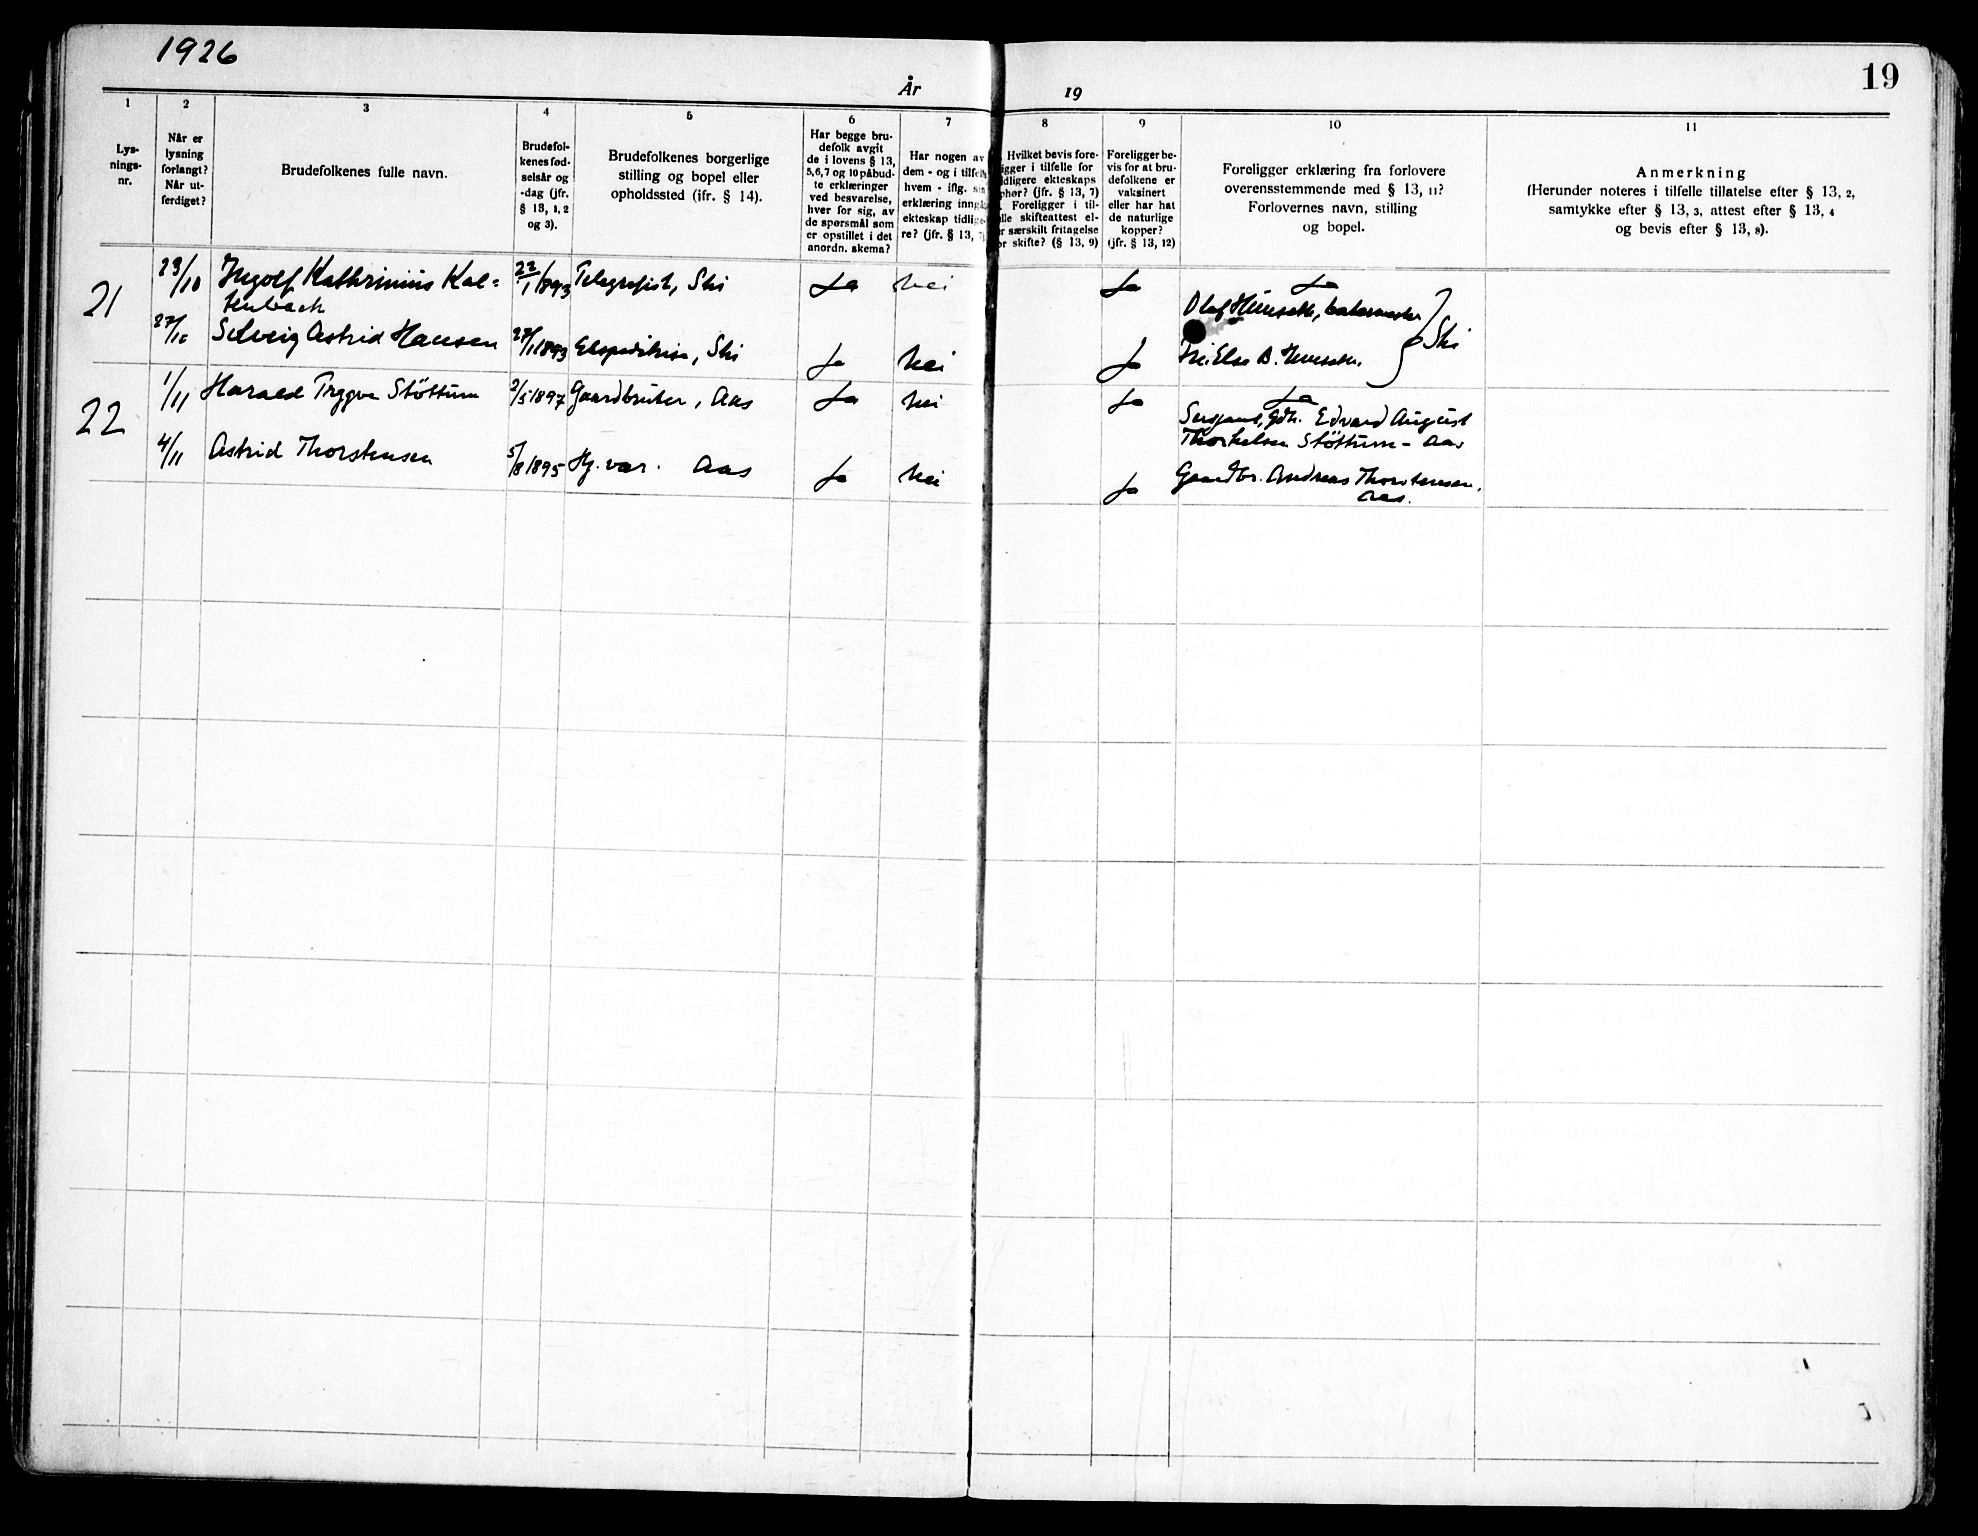 1926
År
19
19
1
2
3
4
5
6
7
8
9
10
11
Lys-
nings-
nr.
Når er
lysning
forlangt?
Når ut-
ferdiget?
Brudefolkenes fulle navn.
Brudefol-
kenes fød-
selsår og
-dag (jfr.
§ 13, 1, 2
og 3).
Brudefolkenes borgerlige
stilling og bopel eller
opholdssted (ifr. § 14).
Har begge bru-
defolk avgit
de i lovens § 13,
5,6,7 og 10 påbud-
te erklæringer
ved besvarelse,
hver for sig, av
de spørsmål som
er opstillet i det
anordn. skema?
Har nogen av
dem - og i tilfell
hvem - iflg. sin
erklæring inngå
ekteskap tidlige-
re? (jfr. § 13, 7)
Hvilket bevis fore-
igger i tilfelle for
idligere ekteskaps
phør? (jfr. § 13, 7)
Foreligger i til-
lle skifteattest el-
r særskilt fritagelse
or skifte? (§ 13, 9)
Foreligger be-
vis for at bru-
defolkene er
vaksinert
eller har hat
de naturlige
kopper?
(jfr. § 13, 12)
Foreligger erklæring fra forlovere
overensstemmende med § 13, 11?
Forlovernes navn, stilling
og bopel.
Anmerkning
(Herunder noteres i tilfelle tillatelse efter § 13, 2,
samtykke efter § 13, 3, attest efter § 13, 4
og bevis efter § 13, 8).
21
23/10
Ingolf Kathrinius Kal-
tenbach
22/1 1893
Telegrafist, Ski
Ja
nei
Ja
Ja
Olaf
Ski
27/10
Solveig Astrid Hansen
27/1 1893
Ekspeditrise, Ski
Ja
Nei
Ja
Else B.
22
1/11
Harald Trygve Stöttum
2/5 1897
Gaardbruker, Aas
Ja
Nei
Ja
Ja
Sersjant, Gdb. Edvard August
Thorkelsen Stöttum - Aas
4/11
Astrid Thorstensen
5/8 1895
Hj. vær. Aas
Ja
Nei
Ja
Gaardbr. Andreas Thorstensen,
Aas.